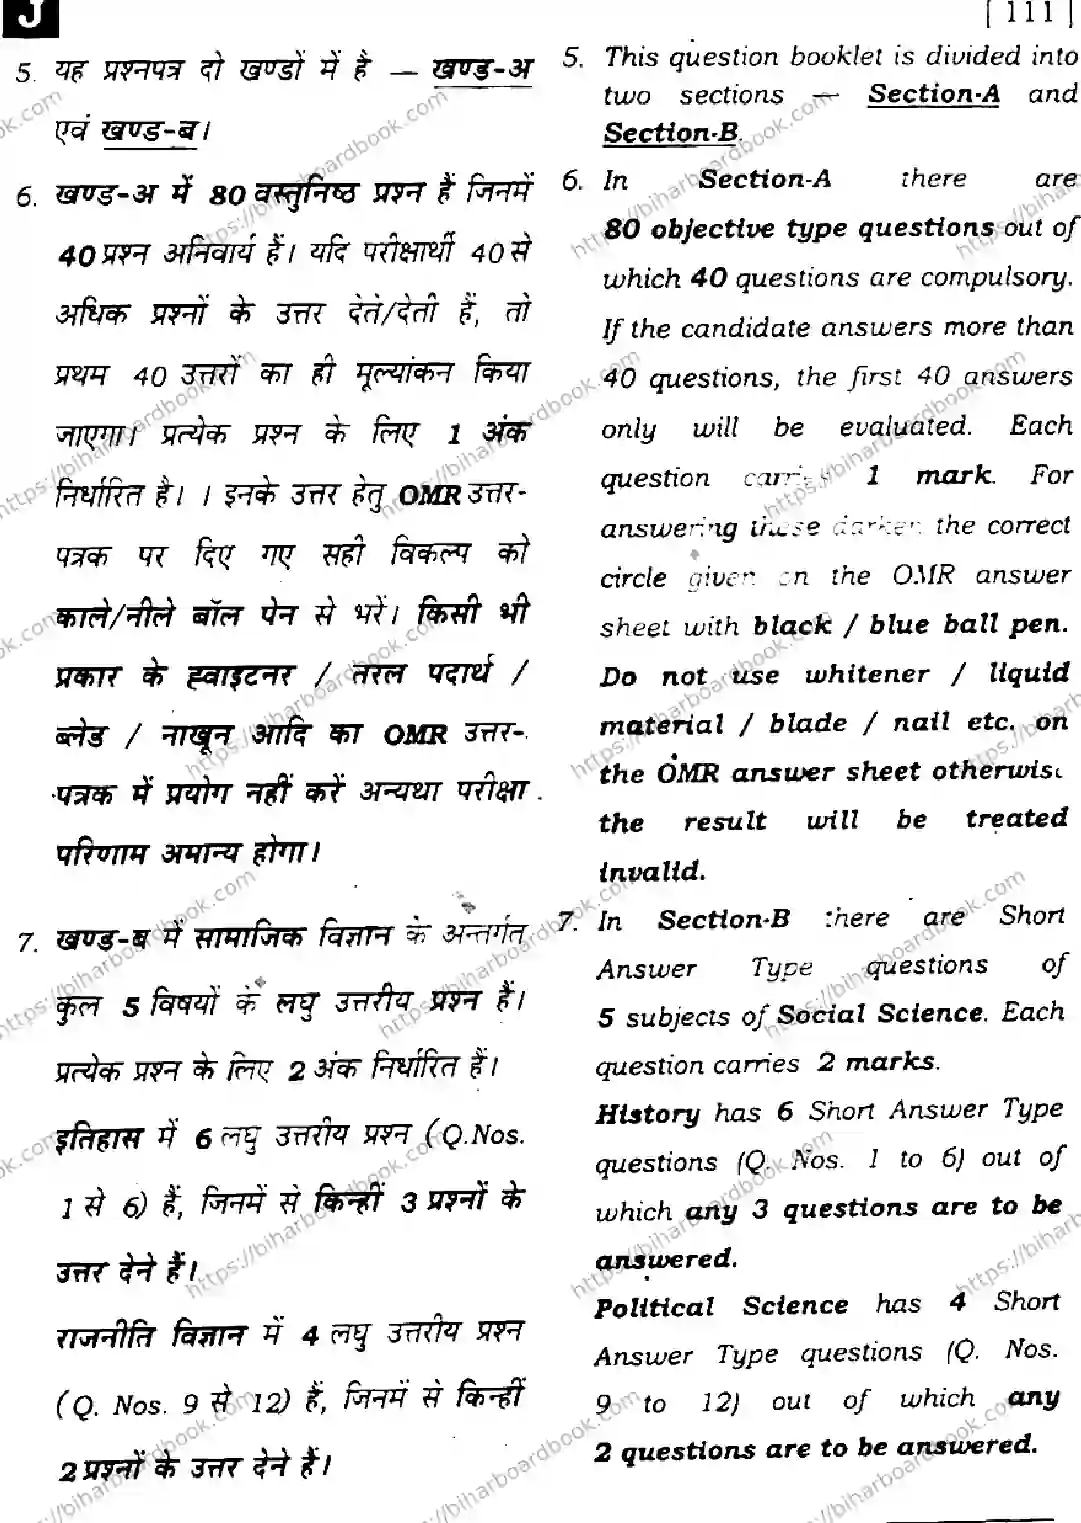 J
[ 111 ]
5. यह प्रश्नपत्र दो खण्डों में है — खण्ड-अ
एवं खण्ड-ब।
6. खण्ड-अ में 80 वस्तुनिष्ठ प्रश्न हैं जिनमें
40 प्रश्न अनिवार्य हैं। यदि परीक्षार्थी 40 से
अधिक प्रश्नों के उत्तर देते/देती हैं, तो
प्रथम 40 उत्तरों का ही मूल्यांकन किया
जाएगा। प्रत्येक प्रश्न के लिए 1 अंक
निर्धारित है। । इनके उत्तर हेतु OMR उत्तर-
पत्रक पर दिए गए सही विकल्प को
काले/नीले बॉल पेन से भरें। किसी भी
प्रकार के ह्वाइटनर / तरल पदार्थ /
ब्लेड / नाखून आदि का OMR उत्तर-
पत्रक में प्रयोग नहीं करें अन्यथा परीक्षा
परिणाम अमान्य होगा।
7. खण्ड-ब में सामाजिक विज्ञान के अन्तर्गत
कुल 5 विषयों के लघु उत्तरीय प्रश्न हैं।
प्रत्येक प्रश्न के लिए 2 अंक निर्धारित हैं।
इतिहास में 6 लघु उत्तरीय प्रश्न (Q.Nos.
1 से 6) हैं, जिनमें से किन्हीं 3 प्रश्नों के
उत्तर देने हैं।
राजनीति विज्ञान में 4 लघु उत्तरीय प्रश्न
(Q. Nos. 9 से 12) हैं, जिनमें से किन्हीं
2 प्रश्नों के उत्तर देने हैं।
5. This question booklet is divided into
two sections — Section-A and
Section-B.
6. In Section-A there are
80 objective type questions out of
which 40 questions are compulsory.
If the candidate answers more than
40 questions, the first 40 answers
only will be evaluated. Each
question carries 1 mark. For
answering these darken the correct
circle given on the OMR answer
sheet with black / blue ball pen.
Do not use whitener / liquid
material / blade / nail etc. on
the OMR answer sheet otherwise
the result will be treated
invalid.
7. In Section-B there are Short
Answer Type questions of
5 subjects of Social Science. Each
question carries 2 marks.
History has 6 Short Answer Type
questions (Q. Nos. 1 to 6) out of
which any 3 questions are to be
answered.
Political Science has 4 Short
Answer Type questions (Q. Nos.
9 to 12) out of which any
2 questions are to be answered.
https://biharboardbook.com